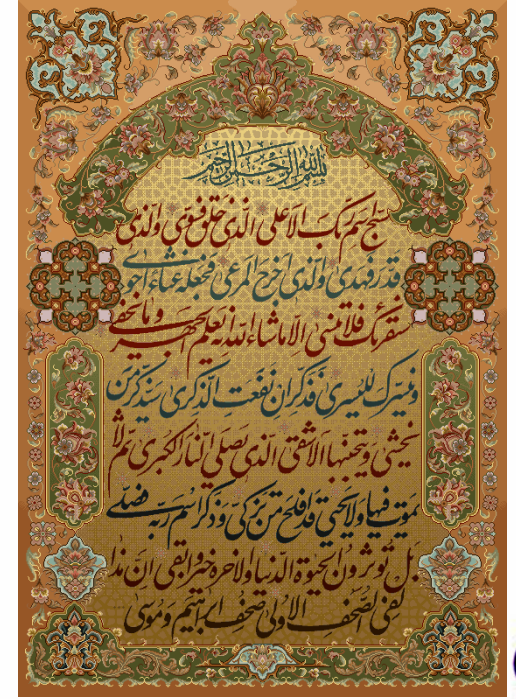 بسم الله الرحمن الرحیم
سبح اسم ربک الاعلی الذی خلق فسوی والذی
قدر فهدی والذی اخرج المرعی فجعله غثاء احوی
سنقرئک فلاتنسی الا ماشاء الله انه یعلم الجهر وما یخفی
ونیسرک للیسری فذکر ان نفعت الذکری سیذکر من
یخشی ویتجنبها الاشقی الذی یصلی النار الکبری ثم لا
یموت فیها ولا یحیی قد افلح من تزکی وذکر اسم ربه فصلی
بل تؤثرون الحیوة الدنیا والاخرة خیر وابقی ان هذا
لفی الصحف الاولی صحف ابراهیم وموسی